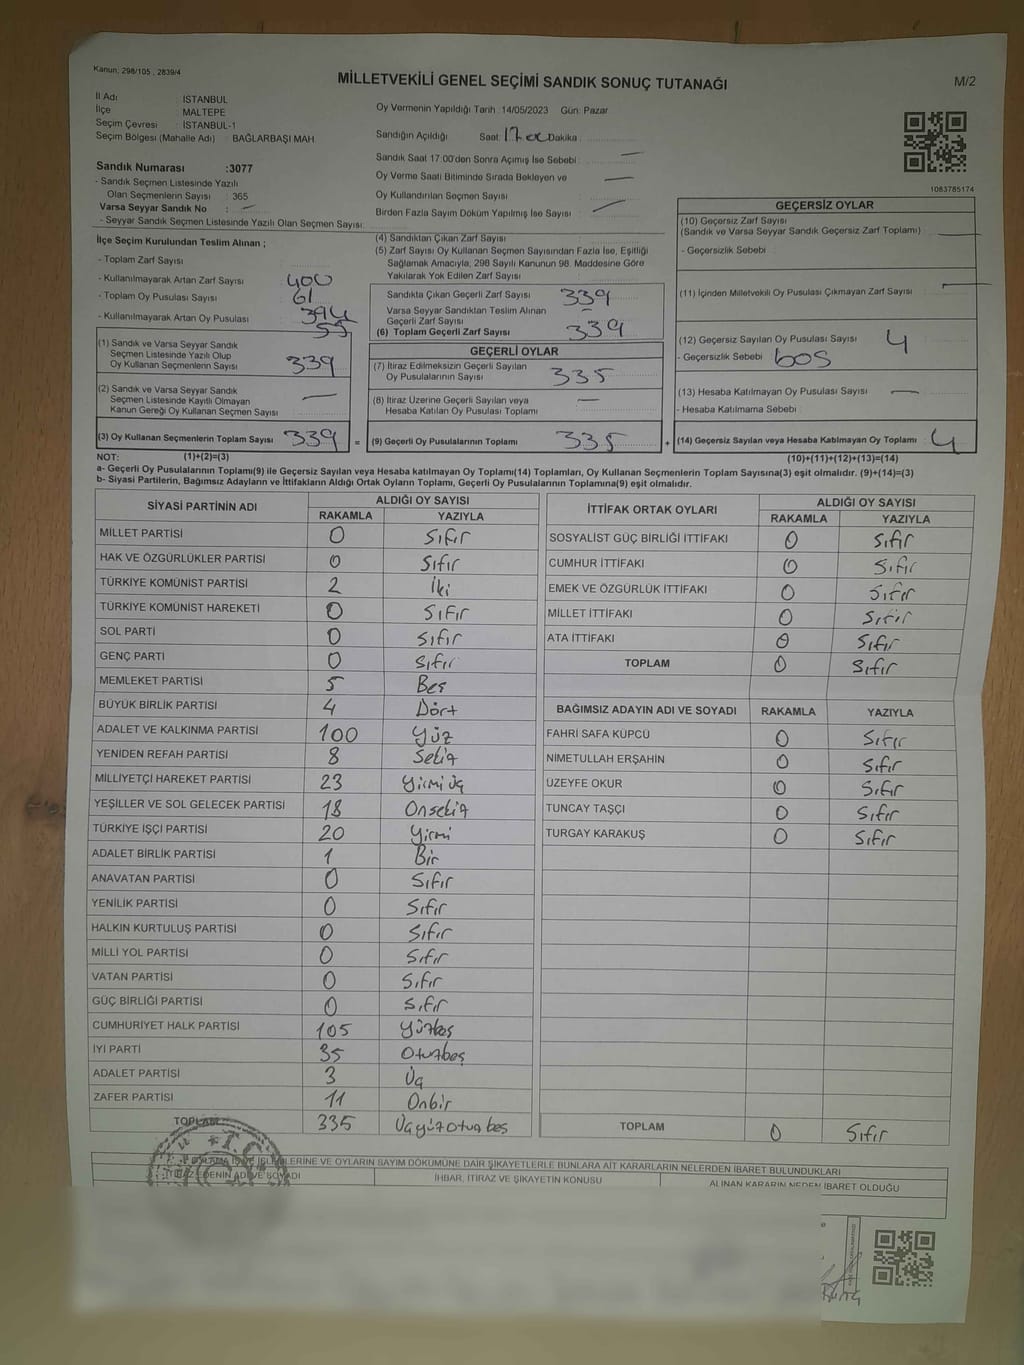 Kanun; 298/105 , 2839/4
MİLLETVEKİLİ GENEL SEÇİMİ SANDIK SONUÇ TUTANAĞI
M/2
İl Adı : İSTANBUL
İlçe : MALTEPE
Seçim Çevresi : İSTANBUL-1
Seçim Bölgesi (Mahalle Adı) : BAĞLARBAŞI MAH.
Oy Vermenin Yapıldığı Tarih :14/05/2023 Gün: Pazar
Sandığın Açıldığı Saat: 17 00 Dakika :
Sandık Saat 17:00'den Sonra Açımış İse Sebebi : —
Oy Verme Saati Bitiminde Sırada Bekleyen ve —
Oy Kullandırılan Seçmen Sayısı
Birden Fazla Sayım Döküm Yapılmış İse Sayısı : —
Sandık Numarası :3077
- Sandık Seçmen Listesinde Yazılı
Olan Seçmenlerin Sayısı : 365
Varsa Seyyar Sandık No : —
- Seyyar Sandık Seçmen Listesinde Yazılı Olan Seçmen Sayısı:
1083785174
İlçe Seçim Kurulundan Teslim Alınan ;
- Toplam Zarf Sayısı : 400
- Kullanılmayarak Artan Zarf Sayısı : 61
- Toplam Oy Pusulası Sayısı : 394
- Kullanılmayarak Artan Oy Pusulası : 55
(1) Sandık ve Varsa Seyyar Sandık
Seçmen Listesinde Yazılı Olup
Oy Kullanan Seçmenlerin Sayısı 339
(2) Sandık ve Varsa Seyyar Sandık
Seçmen Listesinde Kayıtlı Olmayan
Kanun Gereği Oy Kullanan Seçmen Sayısı : —
(3) Oy Kullanan Seçmenlerin Toplam Sayısı 339 =
(4) Sandıktan Çıkan Zarf Sayısı :
(5) Zarf Sayısı Oy Kullanan Seçmen Sayısından Fazla İse, Eşitliği
Sağlamak Amacıyla, 298 Sayılı Kanunun 98. Maddesine Göre
Yakılarak Yok Edilen Zarf Sayısı :
Sandıkta Çıkan Geçerli Zarf Sayısı 339
Varsa Seyyar Sandıktan Teslim Alınan
Geçerli Zarf Sayısı
(6) Toplam Geçerli Zarf Sayısı : 339
GEÇERLİ OYLAR
(7) İtiraz Edilmeksizin Geçerli Sayılan
Oy Pusulalarının Sayısı 335
(8) İtiraz Üzerine Geçerli Sayılan veya
Hesaba Katılan Oy Pusulası Toplamı —
(9) Geçerli Oy Pusulalarının Toplamı 335 +
GEÇERSİZ OYLAR
(10) Geçersiz Zarf Sayısı
(Sandık ve Varsa Seyyar Sandık Geçersiz Zarf Toplamı) —
- Geçersizlik Sebebi :
(11) İçinden Milletvekili Oy Pusulası Çıkmayan Zarf Sayısı : —
(12) Geçersiz Sayılan Oy Pusulası Sayısı : 4
- Geçersizlik Sebebi : boş
(13) Hesaba Katılmayan Oy Pusulası Sayısı : —
- Hesaba Katılmama Sebebi :
(14) Geçersiz Sayılan veya Hesaba Katılmayan Oy Toplamı 4
NOT: (1)+(2)=(3) (10)+(11)+(12)+(13)=(14)
a- Geçerli Oy Pusulalarının Toplamı(9) ile Geçersiz Sayılan veya Hesaba katılmayan Oy Toplamı(14) Toplamları, Oy Kullanan Seçmenlerin Toplam Sayısına(3) eşit olmalıdır. (9)+(14)=(3)
b- Siyasi Partilerin, Bağımsız Adayların ve İttifakların Aldığı Ortak Oyların Toplamı, Geçerli Oy Pusulalarının Toplamına(9) eşit olmalıdır.
SİYASİ PARTİNİN ADI ALDIĞI OY SAYISI
RAKAMLA YAZIYLA
MİLLET PARTİSİ 0 Sıfır
HAK VE ÖZGÜRLÜKLER PARTİSİ 0 Sıfır
TÜRKİYE KOMÜNİST PARTİSİ 2 İki
TÜRKİYE KOMÜNİST HAREKETİ 0 Sıfır
SOL PARTİ 0 Sıfır
GENÇ PARTİ 0 Sıfır
MEMLEKET PARTİSİ 5 Beş
BÜYÜK BİRLİK PARTİSİ 4 Dört
ADALET VE KALKINMA PARTİSİ 100 Yüz
YENİDEN REFAH PARTİSİ 8 Sekiz
MİLLİYETÇİ HAREKET PARTİSİ 23 Yirmi üç
YEŞİLLER VE SOL GELECEK PARTİSİ 18 Onsekiz
TÜRKİYE İŞÇİ PARTİSİ 20 Yirmi
ADALET BİRLİK PARTİSİ 1 Bir
ANAVATAN PARTİSİ 0 Sıfır
YENİLİK PARTİSİ 0 Sıfır
HALKIN KURTULUŞ PARTİSİ 0 Sıfır
MİLLİ YOL PARTİSİ 0 Sıfır
VATAN PARTİSİ 0 Sıfır
GÜÇ BİRLİĞİ PARTİSİ 0 Sıfır
CUMHURİYET HALK PARTİSİ 105 Yüzbeş
İYİ PARTİ 35 Otuzbeş
ADALET PARTİSİ 3 Üç
ZAFER PARTİSİ 11 Onbir
TOPLAM 335 Üçyüzotuzbeş
İTTİFAK ORTAK OYLARI ALDIĞI OY SAYISI
RAKAMLA YAZIYLA
SOSYALİST GÜÇ BİRLİĞİ İTTİFAKI 0 Sıfır
CUMHUR İTTİFAKI 0 Sıfır
EMEK VE ÖZGÜRLÜK İTTİFAKI 0 Sıfır
MİLLET İTTİFAKI 0 Sıfır
ATA İTTİFAKI 0 Sıfır
TOPLAM 0 Sıfır
BAĞIMSIZ ADAYIN ADI VE SOYADI RAKAMLA YAZIYLA
FAHRİ SAFA KÜPCÜ 0 Sıfır
NİMETULLAH ERŞAHİN 0 Sıfır
ÜZEYFE OKUR 0 Sıfır
TUNCAY TAŞÇI 0 Sıfır
TURGAY KARAKUŞ 0 Sıfır
TOPLAM 0 Sıfır
T.C.
OYLAMA İŞ VE İŞLEMLERİNE VE OYLARIN SAYIM DÖKÜMÜNE DAİR ŞİKAYETLERLE BUNLARA AİT KARARLARIN NELERDEN İBARET BULUNDUKLARI
İTİRAZ EDENİN ADI VE SOYADI İHBAR, İTİRAZ VE ŞİKAYETİN KONUSU ALINAN KARARIN NEDEN İBARET OLDUĞU